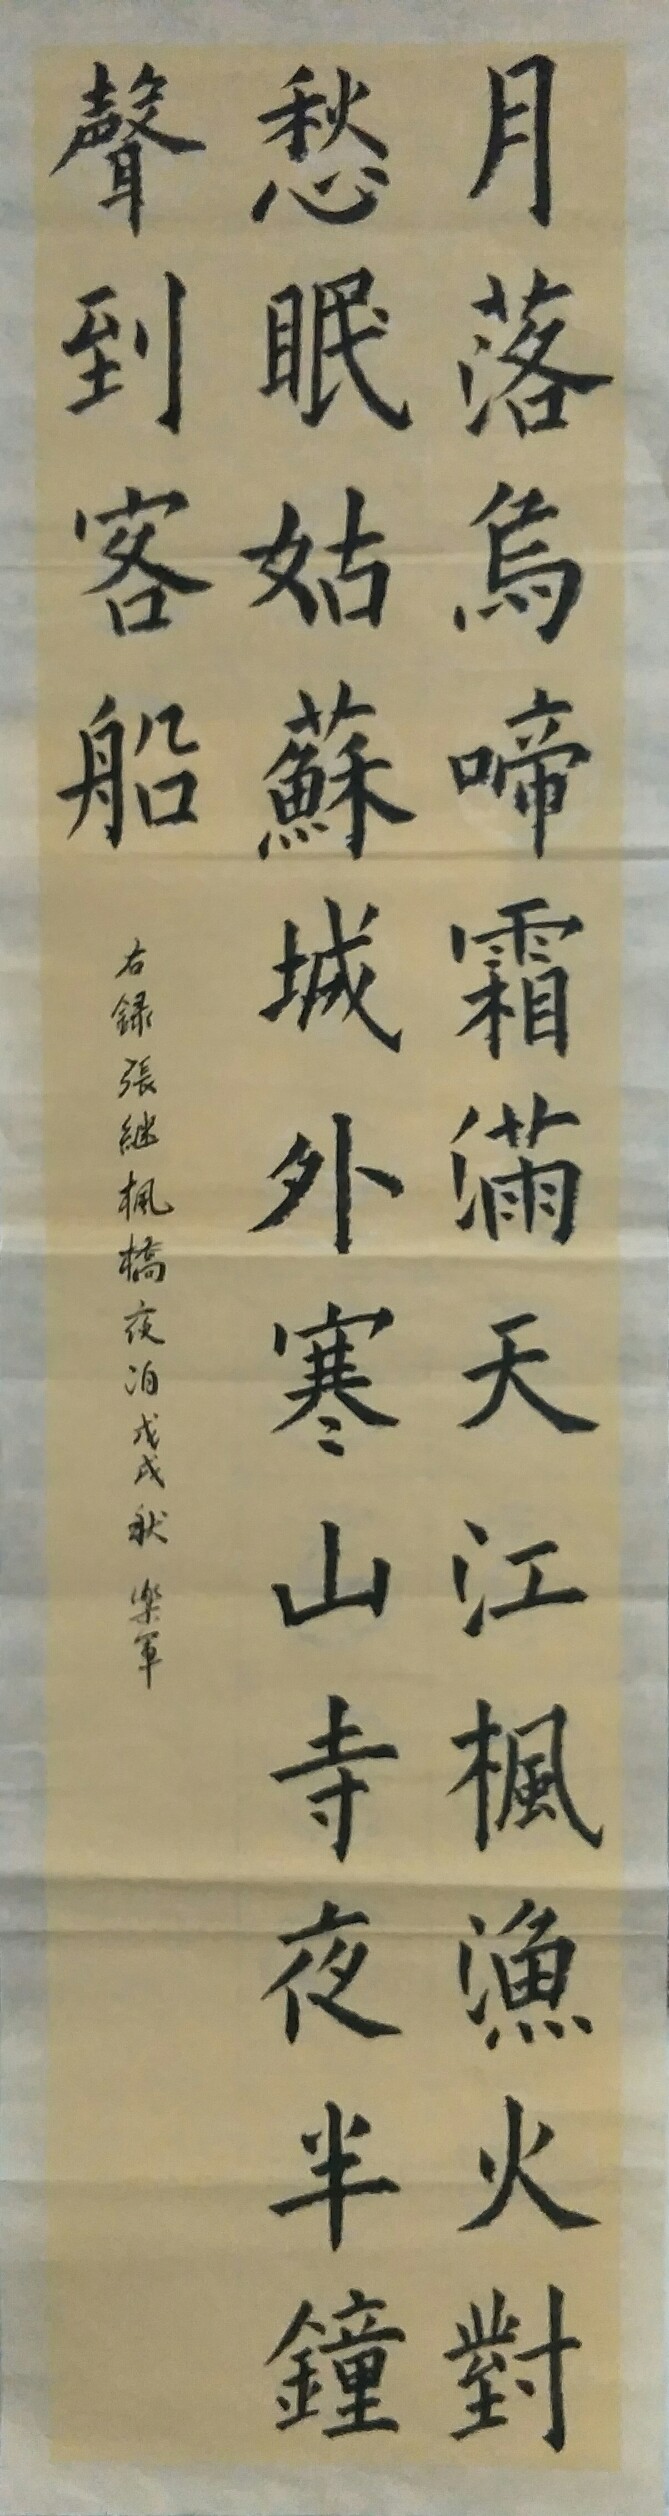 月落烏啼霜滿天江楓漁火對
愁眠姑蘇城外寒山寺夜半鐘
聲到客船
右録張継楓橋夜泊戊戌秋 樂軍